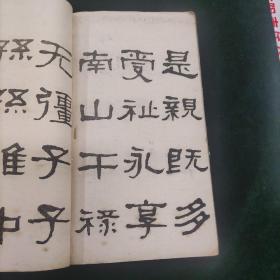 是親既多
受祉永享
南山干祿
无疆子子
孫孫惟中